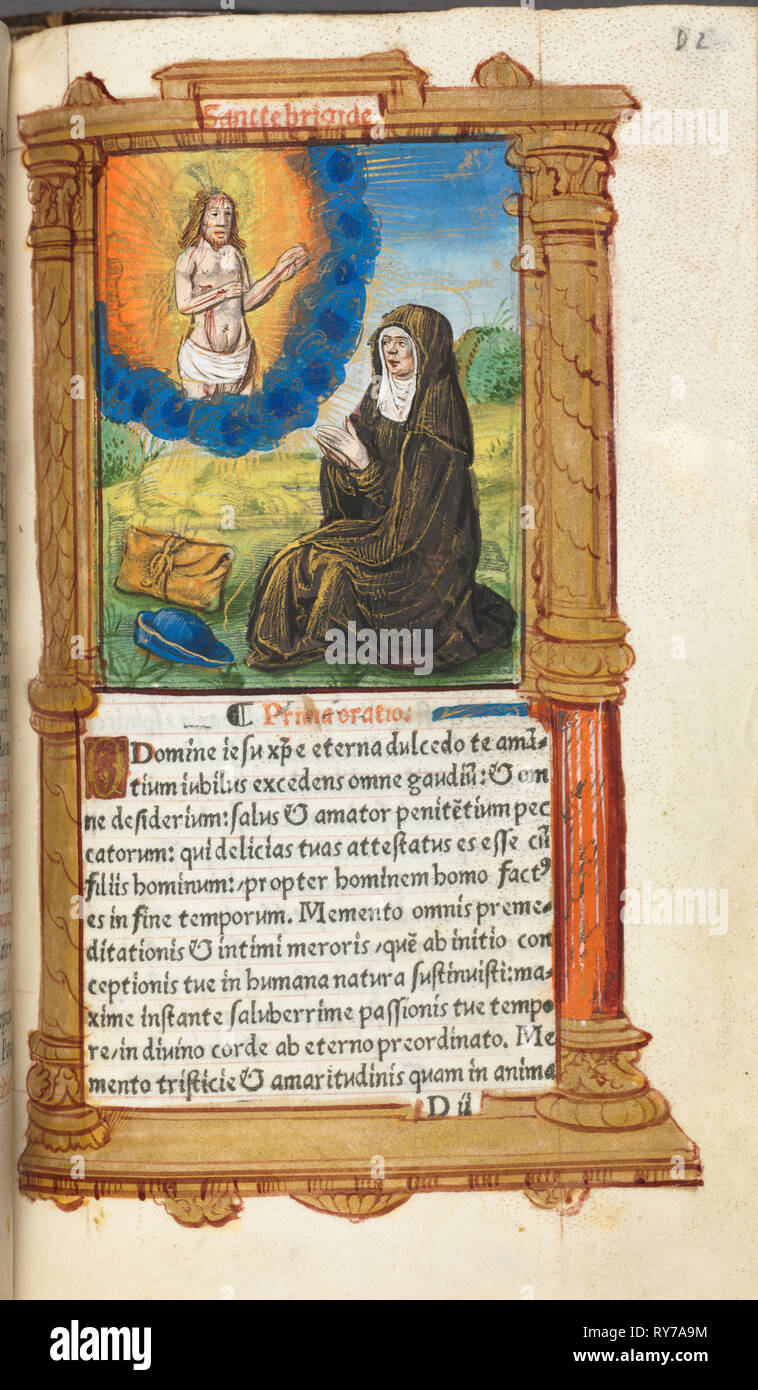 D 2
Sancte brigide
¶ Prima oratio:
O Domine iesu xp̄e eterna dulcedo te amā-
tium iubilus excedens omne gaudiū: & om
ne desiderium: salus & amator penitētium pec
catorum: qui delicias tuas attestatus es esse cū
filiis hominum: propter hominem homo factꝰ
es in fine temporum. Memento omnis preme-
ditationis & intimi meroris / quē ab initio con
ceptionis tue in humana natura sustinuisti: ma-
xime instante saluberrime passionis tue tempo
re / in divino corde ab eterno preordinato. Me
mento tristicie & amaritudinis quam in anima
D ii
alamy
alamy
alamy
Image ID: RY7A9M
www.alamy.com